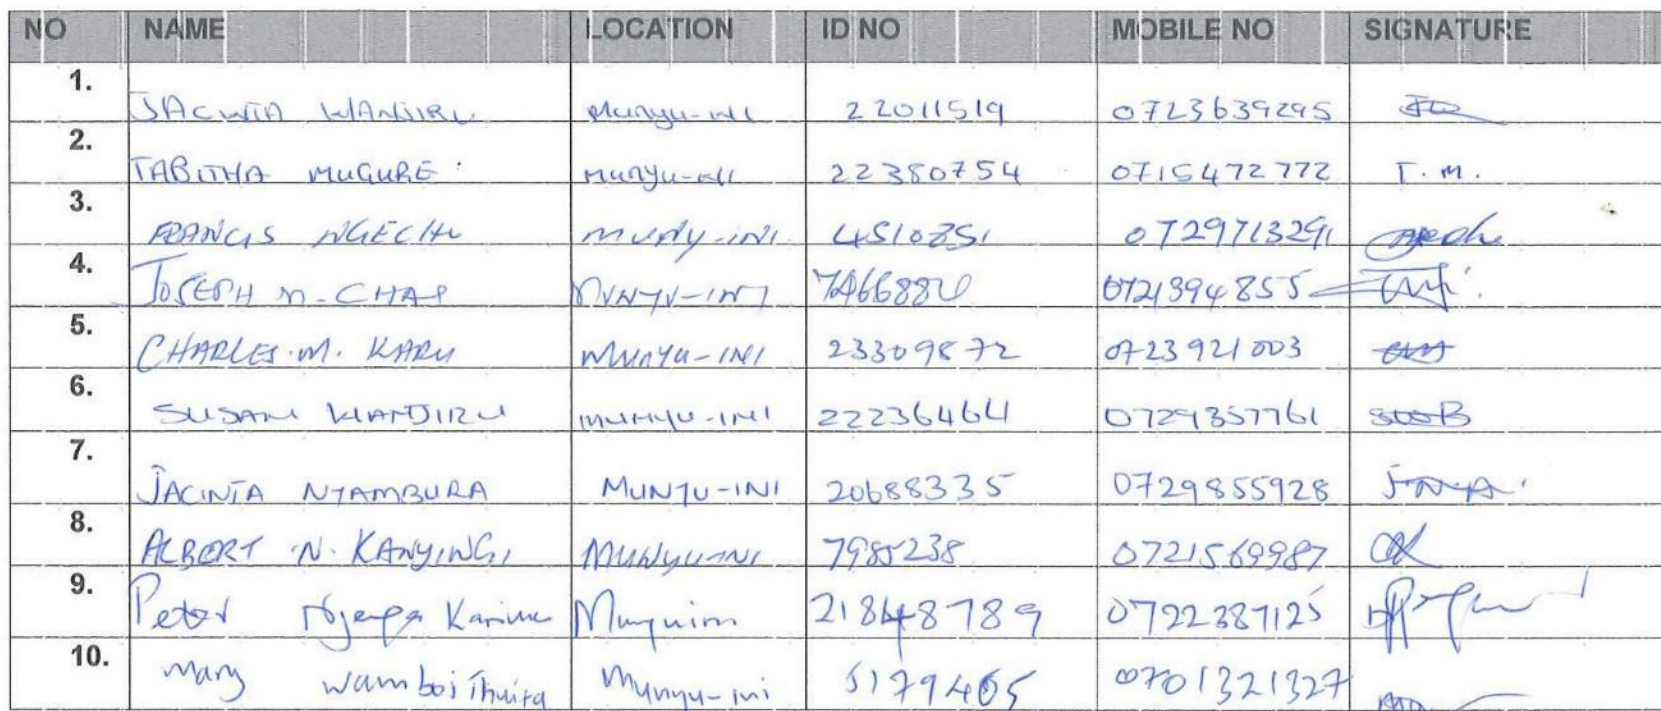 NO NAME LOCATION ID NO MOBILE NO SIGNATURE
1. JACINTA WANJIRU Munyu-ini 22011519 0723639295
2. TABITHA MUGURE Munyu-ini 22380754 0715472772 T.M.
3. FRANCIS NGECHU MUNY-INI 0729713291
4. JOSEPH M. CHAP MUNYU-INI 0721394855
5. CHARLES.M. KARU MUNYU-INI 23309872 0723921003
6. SUSAN WANJIRU MUNYU-INI 22236464 0729357761
7. JACINTA NYAMBURA MUNYU-INI 20688335 0729855928
8. ALBERT N. KANYINGI MUNYU-INI 7985238 0721569987
9. Peter Njenga Munyuini 21848789 0722387125
10. Mary Wamboi Thuita Munyu-ini 0701321327